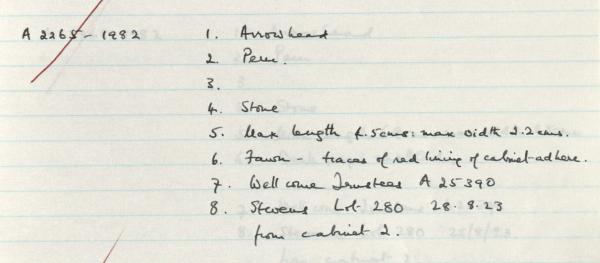 A 2265 - 1982 1. Arrowhead
2. Peru.
3.
4. Stone
5. Max length 4.5cms: max width 2.2cms.
6. Fawn - traces of red lining of cabinet adhere.
7. Wellcome Trustees A 25390
8. Stevens Lot 280 28.8.23
from cabinet 2.